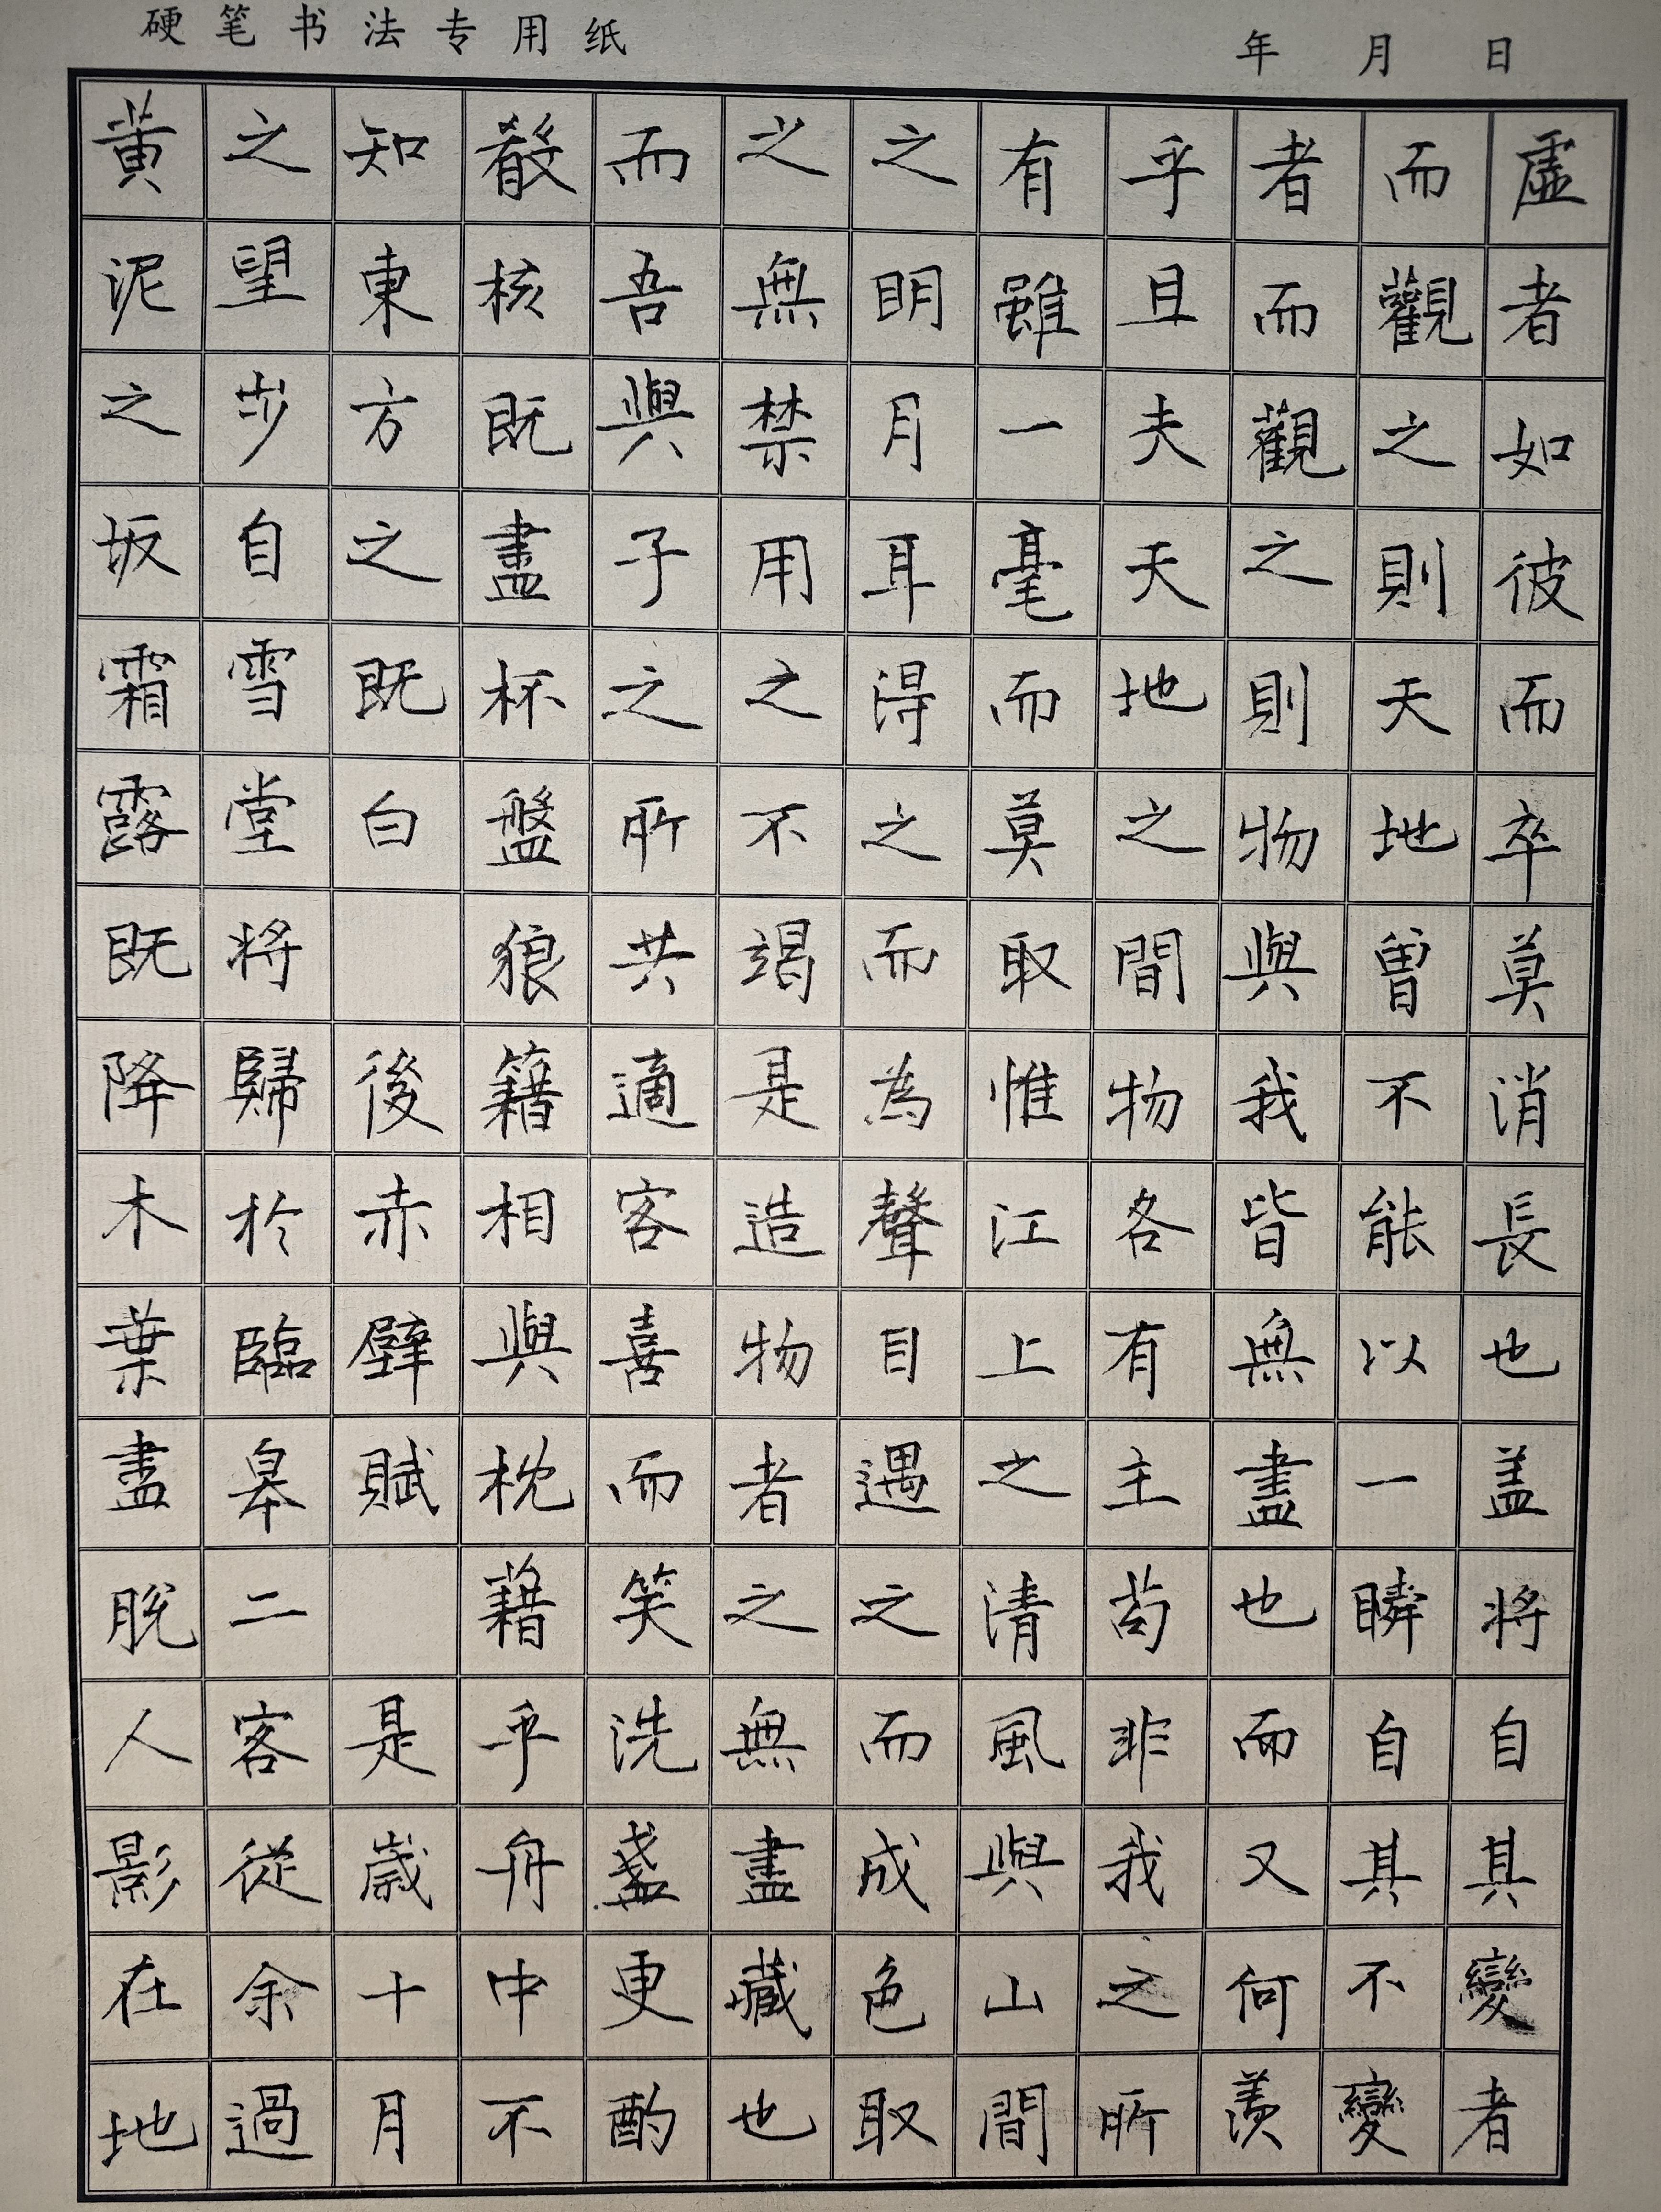 硬笔书法专用纸
年 月 日
虛者如彼而卒莫消長也盖將自其變者
而觀之則天地曾不能以一瞬自其不變
者而觀之則物與我皆無盡也而又何羨
乎且夫天地之間物各有主苟非我之所
有雖一毫而莫取惟江上之清風與山間
之明月耳得之而為聲目遇之而成色取
之無禁用之不竭是造物者之無盡藏也
而吾與子之所共適客喜而笑洗盞更酌
殽核既盡杯盤狼籍相與枕藉乎舟中不
知東方之既白 後赤壁賦 是歲十月
之望步自雪堂將歸於臨皋二客從余過
黃泥之坂霜露既降木葉盡脫人影在地